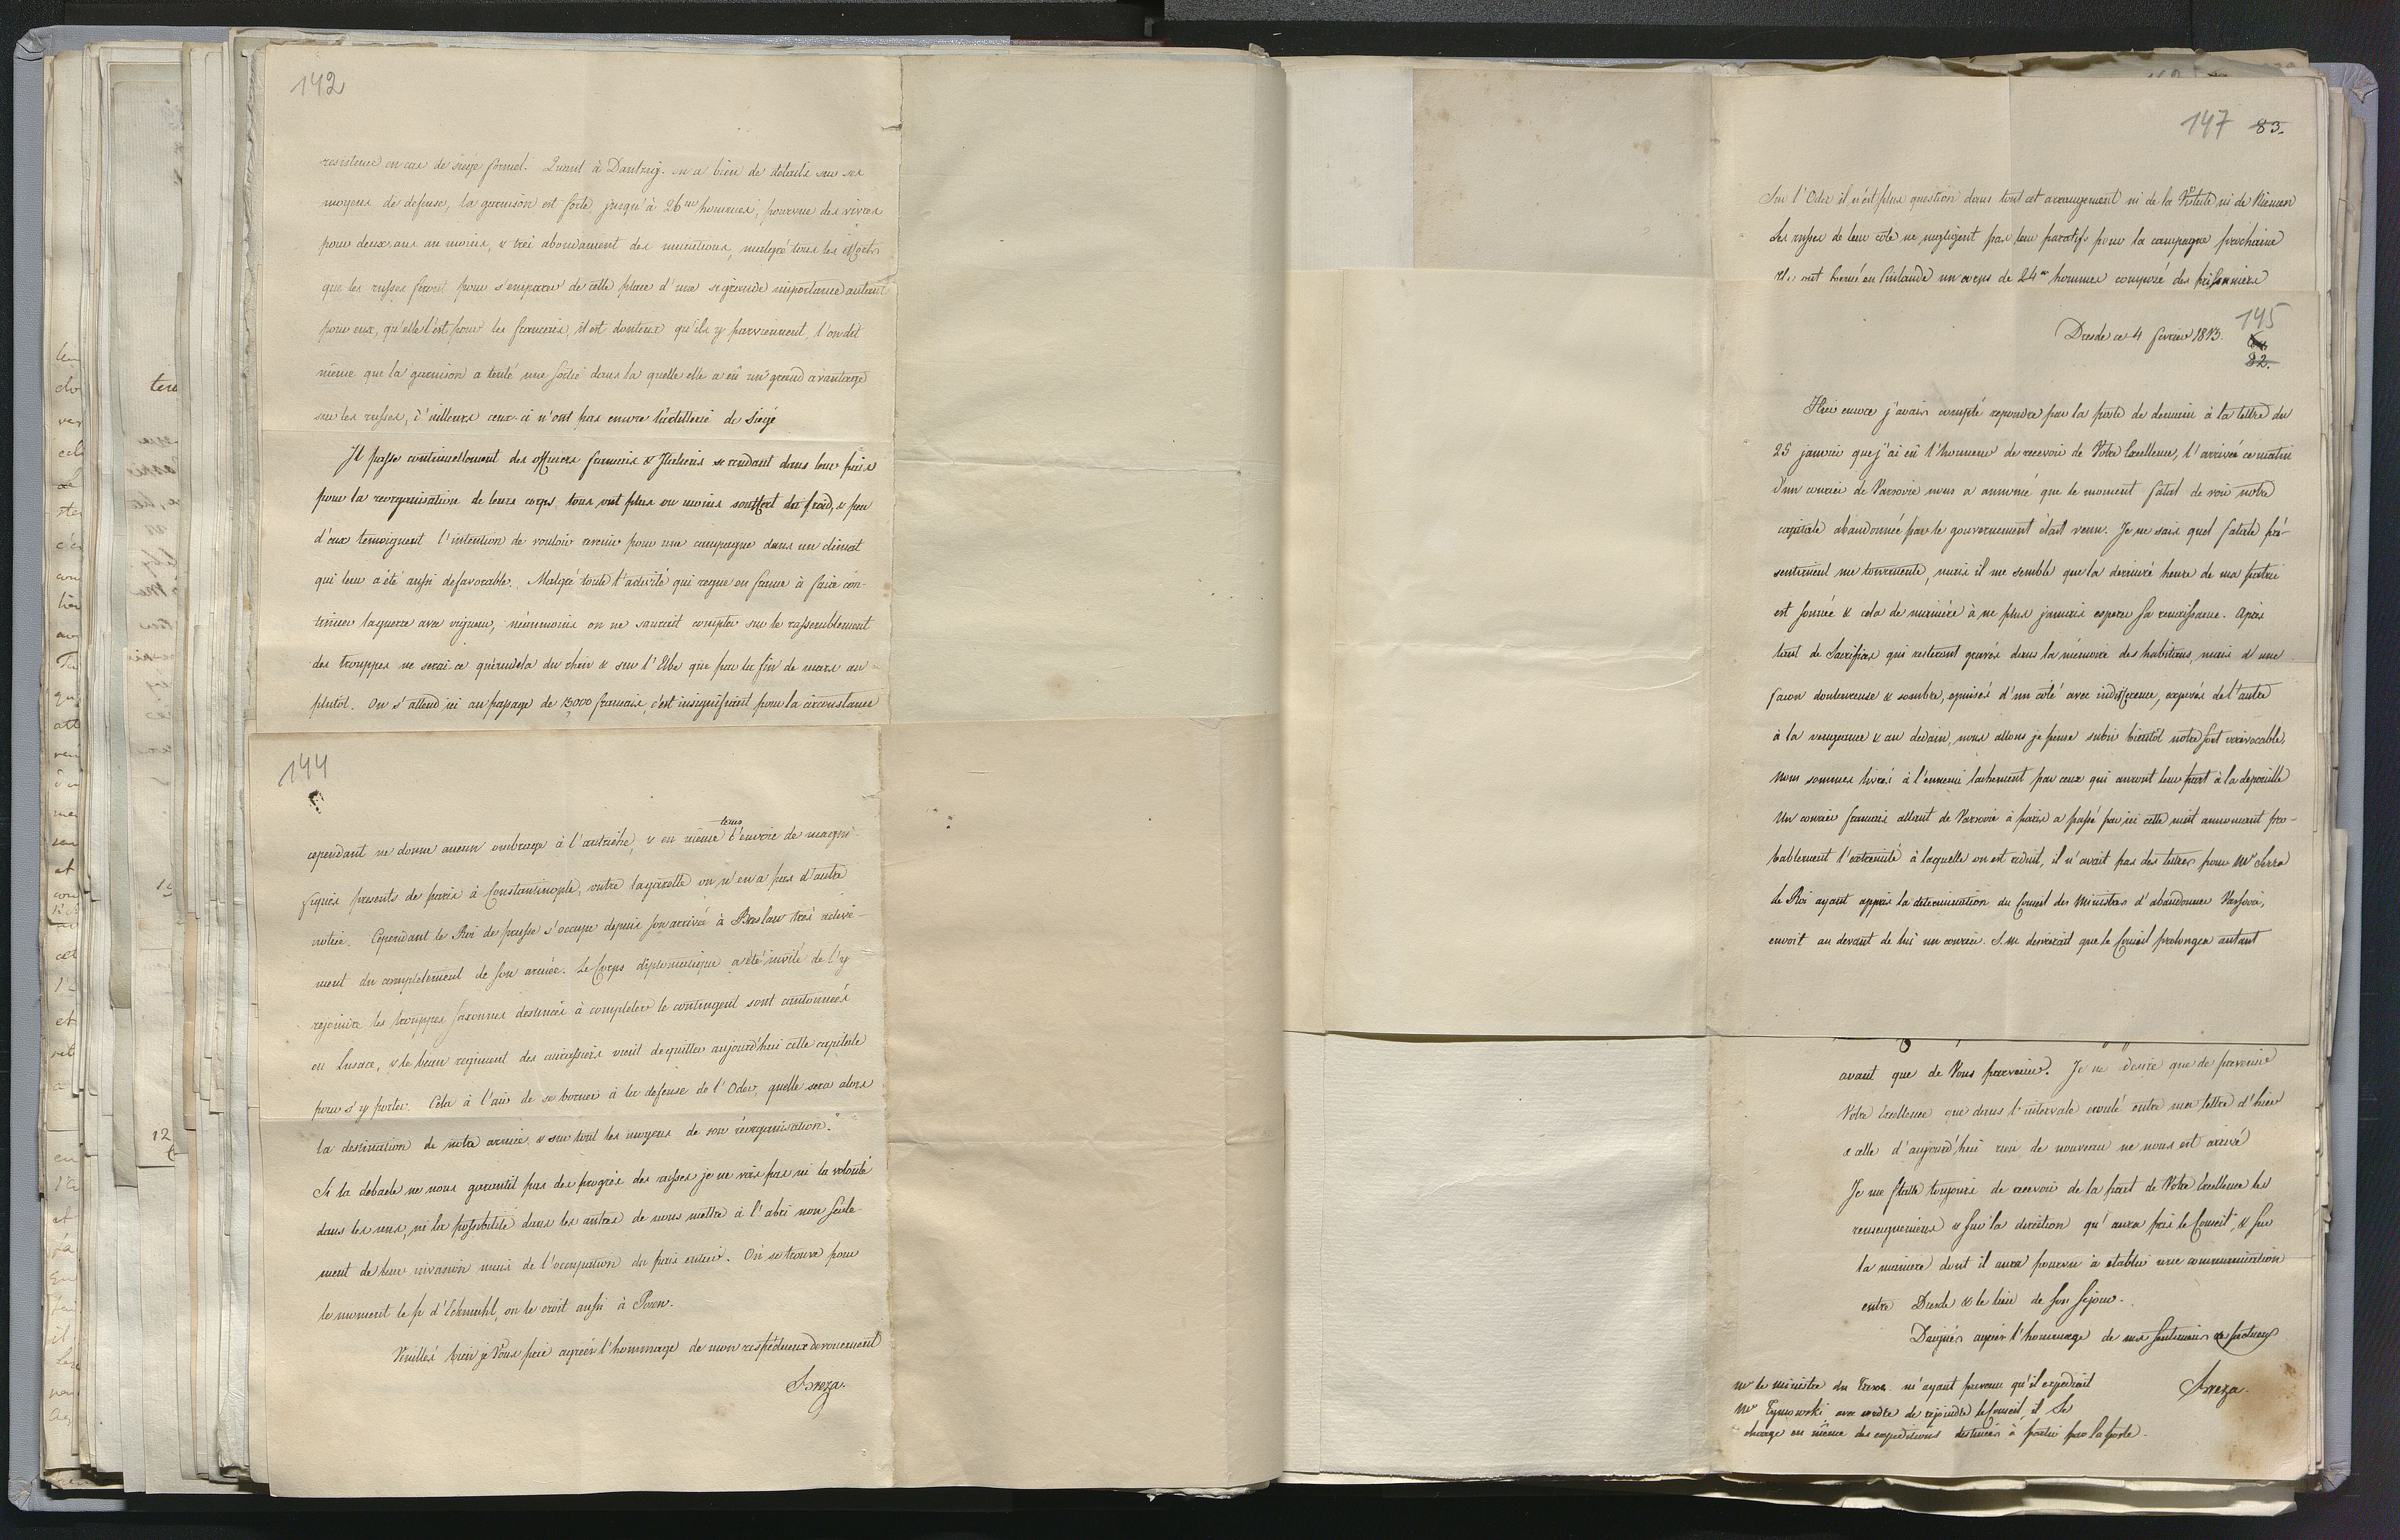 142
resistence en cas de siege formel. Quant à Dantzig. on a bien de détails sur ses
moyens de defense, la garnison est forte jusqu'à 26 m hommes, pourvue des vivres
pour deux ans au moins, & trés abondament des munitions, malgré tous les efforts
que les russes feront pour s'emparer de cette place d'une si grande importance autant
pour eux, qu'elle l'est pour les francais, il est douteux qu'ils y parviennent, l'on dit
même que la garnison a tenté une sortie dans la quelle elle a eû un grand avantage
sur les russes, d'ailleurs ceux-ci n'ont pas encore l'artillerie de Siege
Il passe continuellement des officiers francais & Italiens se rendant dans leur païs
pour la reorganisation de leurs corps, tous ont plus ou moins souffert du froid, & peu
d'eux temoignent l'intention de vouloir revenir pour une campagne dans un climat
qui leur a été aussi defavorable. Malgré toute l'activité qui regne en france à faire con-
tinuer la guerre avec vigueur, néanmoins on ne saurait compter sur le rassemblement
des trouppes ne serai-ce qu'audela du rhin & sur l'Elbe que par la fin de mars au
plutôt. On s'attend ici au passage de 15000 francais, c'est insignifiant pour la circonstance
144
cependant ne donne aucun ombrage à l'autriche, & en même tems l'envoie de magni-
fiques presents de paris à Constantinople, outre la gazette on n'en a pas d'autre
notice. Cependant le Roi de prusse s'occupe depuis son arrivée à Breslau très active-
ment du completement de son armée. Le Corps diplomatique a été invité de l'y
rejoindre les trouppes saxonnes destinées à completer le contingent sont cantonnées
en Lusace, & le beau regiment des cuirassiers vient de quitter aujourd'hui cette capitale
pour s'y porter. Cela à l'air de se borner à la defense de l'Oder, quelle sera alors
la destination de notre armée & sur tout les moyens de son réorganisation.
Si la debacle ne nous garantit pas des progrès des russes je ne vois pas ni la volonté
dans les uns, ni la possibilité dans les autres de nous mettre à l'abri non seule-
ment de leur invasion mais de l'occupation du païs entier. On se trouve pour
le moment le p d'Eckmuhl, on le croit aussi à Posen.
Veuillés bien je Vous prie agréer l'hommage de mon respectueux devouement
Breza.
147 83.
Sur l'Oder il n'est plus question dans tout cet arrangement ni de la Vistule ni de Niemen
Les russes de leur côté ne negligent pas leur preparatifs pour la campagne prochaine
Ils ont formé en Finlande un corps de 24 m hommes composé des prisonniers
145
82.
Dresde ce 4 fevrier 1813.
Hier encore j'avais compté repondre par la poste de demain à la lettre du
25 janvier que j'ai eû l'honneur de recevoir de Votre Excellence, l'arrivée ce matin
d'un courier de Varsovie nous a annoncé que le moment fatal de voir notre
capitale abandonnée par le gouvernement était venu. Je ne sais quel fatale pré-
sentiment me tourmente, mais il me semble que la dernière heure de ma patrie
est sonnée & cela de manière à ne plus jamais esperer sa renaissance. Après
tant de Sacrifices qui resteront gravés dans la mémoire des habitans, mais d'une
facon douloureuse & sombre, epuisés d'un coté avec indifference, exposés de l'autre
à la vengeance & au dedain, nous allons je pense subir bientôt notre sort irrévocable,
nous sommes livrés à l'ennemi lachement par ceux qui auront leur part à la depouille
Un courier francais allant de Varsovie à paris a passé par ici cette nuit annoncant pro-
bablement l'extremité à laquelle on est reduit, il n'avait pas des lettres pour Mr Serra
Le Roi ayant appris la determination du Conseil des Ministres d'abandonner Varsovie,
envoit au devant de lui un courier. S.M desirerait que le Conseil prolongea autant
avant que de Vous parvenir. Je ne desire que de prevenir
Votre Excellence que dans l'intervale ecoulé entre ma lettre d'hier
& celle d'aujourd'hui rien de nouveau ne nous est arrivé
Je me flatte toujours de recevoir de la part de Votre Excellence les
renseignemens & sur la direction qu'aura pris le Conseil, & sur
la manière dont il aura pourvu à etablir une communication
entre Dresde & le lieu de son sejour.
Daignés agréer l'hommage de mes sentimens respectueux
Breza.
Mr le ministre du Tresor m'ayant prevenu qu'il expedirait
Mr Tymowski avec ordre de rejoindre le Conseil, il se
charge en même des expeditions destinées à partir par la poste.